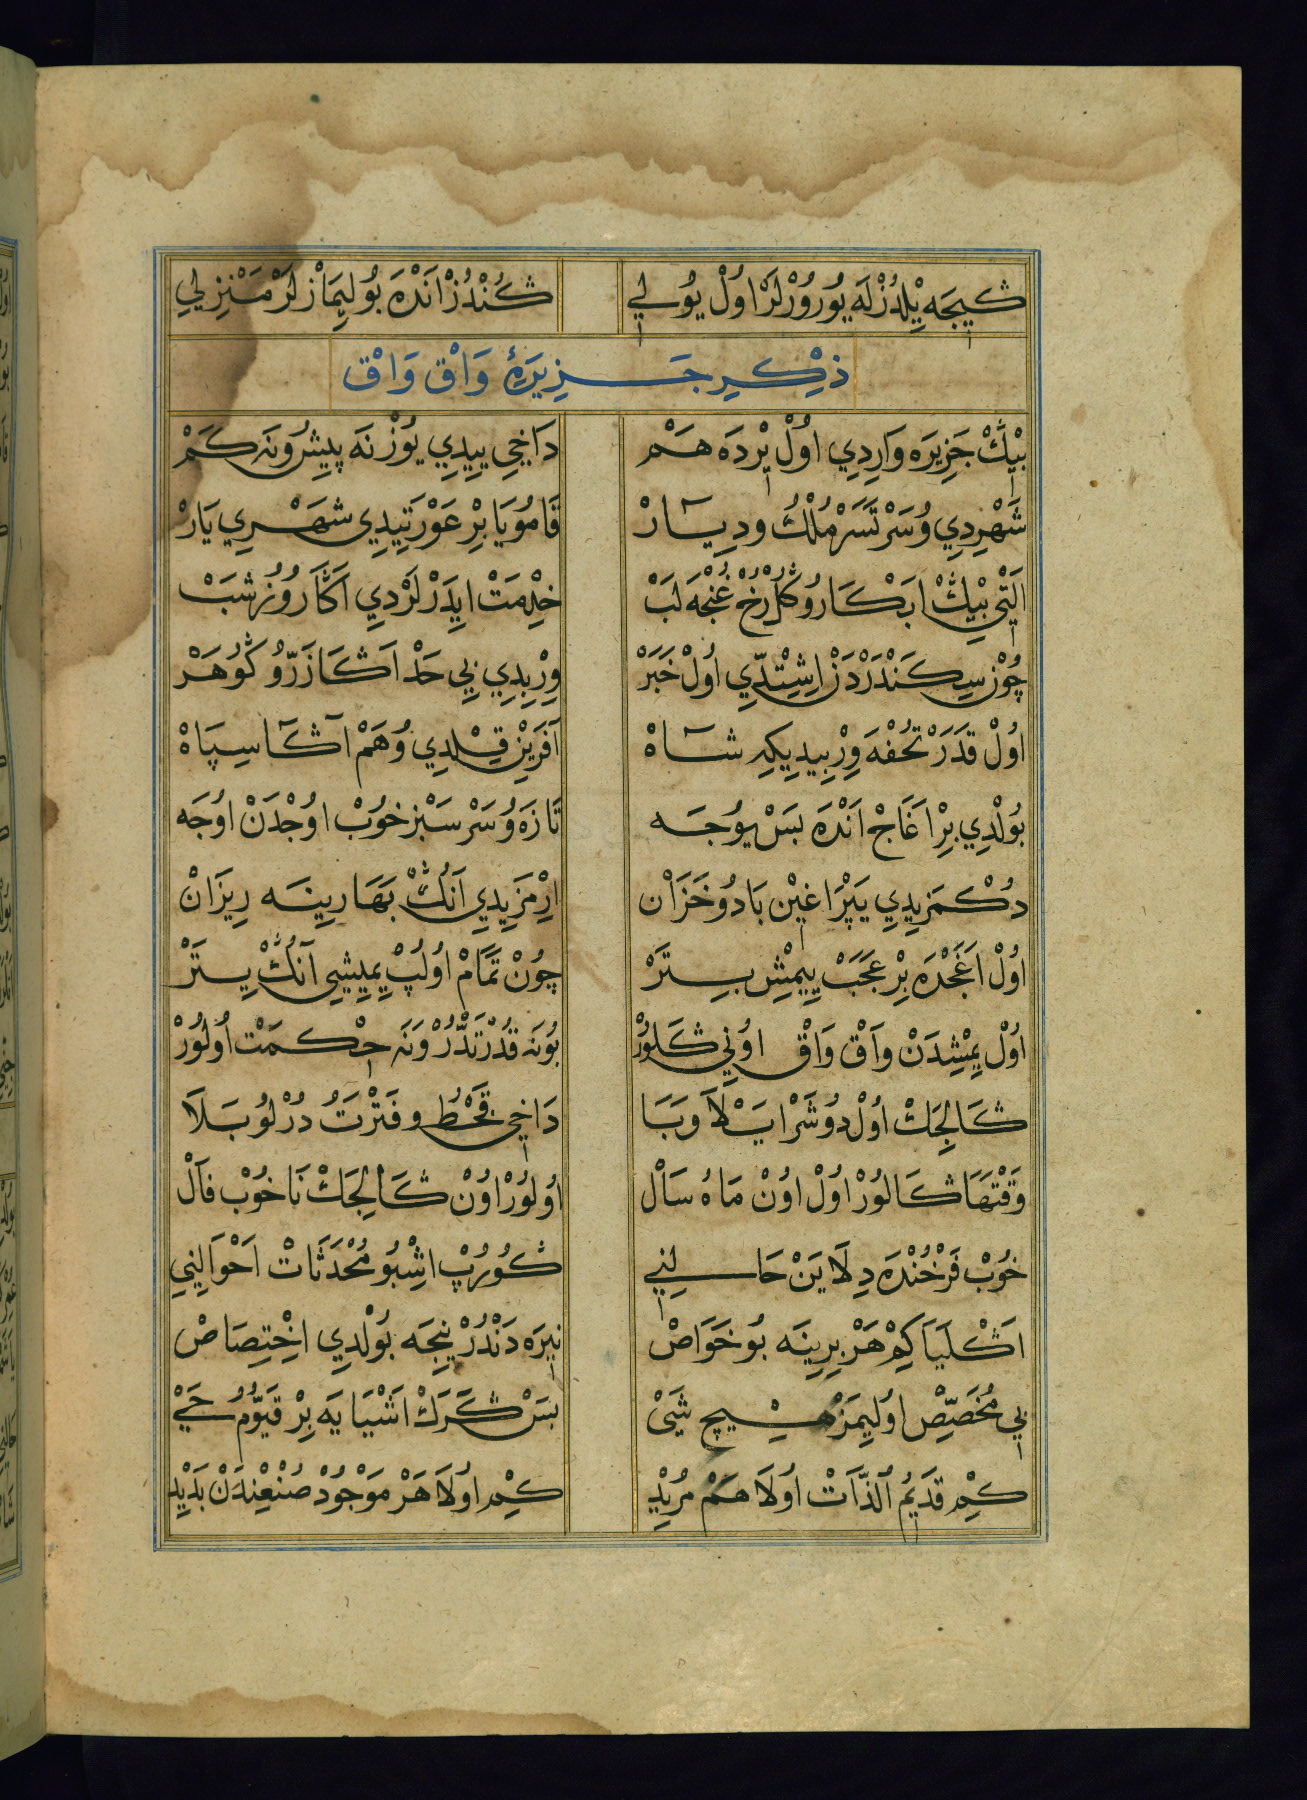 كيجه يِلْدُزْلَه يُورُورْلَرْ اوُلْ يُولي كُنْدُزْ اَنْدَه بُولِيمَازْلَرْ مَنْزِلي
ذِكْرِ جَزِيرَهٔ وَاقْ وَاقْ
بْيِڭْ جَزِيرَه وَارِدِي اوُلْ يْردَه هَمْ دَاخِي يِيدِي يُوزْ نَه پيشُ و نَه كَمْ
شَهْرِدِي وُ سَرْتَسَرْ مُلْكُ و دِيَارْ قَامُويَا بِرْ عَوْرَتِيدِي شَهْرِيَارْ
اَلْتِي بْيِڭْ اَبْكَارُ و كُلْ رُخْ غُنْجَه لَبْ خِدْمَتْ ايِدَرْلَرْدِي اَڭَا رُوزُ شَبْ
چُونْ سِكَنْدَرْدَنْ اِشِتْدِي اوُلْ خَبَرْ وِرْيِدِي بِي حَدْ اَڭَا زَرُّو كَوُهَرْ
اوُلْ قَدَرْ تُحْفَه وِرْيِيدِيكِه شَاهْ آفَرِينْ قِلْدِي وُ هَمْ آڭَا سِپَاهْ
بُولْدِي بِرْ اَغَاجْ اَنْدَه بَسْ يُوجَه تَازَه وُ سَرْ سَبْز خُوبْ اوُجْدَنْ اوُجَه
دُكْمَزِيدِي يَپْرَاغِينْ بَادُ و خَزَانْ اِرْمَزِيدِي آنُڭْ بَهَارِينَه رِيزَانْ
اوُلْ اَغَجْدَه بِرْ عَجَبْ يِيمِشْ بِتَرْ چُونْ تَمَامْ اوُلُپْ يِمِيشِي آنُڭْ يِتَرْ
اوُلْ يِمِشِدَنْ وَاقْ وَاقْ اوُنِي كَلُورْ بُو نَه قُدْرَتْدُرْ و نَه حِكْمَتْ اُولُورْ
كَالِجَكْ اوُلْ دُوشَرْ اَيْلَا وَبَا دَاخِي قَحْطُ و فَتْرَتُ دُرْلُو بَلَا
وَقْتِهَا كَالُورْ اوُلْ اوُنْ مَاهُ سَالْ اوُلُورْ اوُنْ كَالِجَكْ نَاخُوبْ فَالْ
خُوبْ فَرْخُنْدَه دِلَايَنْ حَالِنِي كُورُپْ اِشْبُو مُحْدَثَاتْ اَحْوَالِينِي
اَڭْلَيَا كِمْ هَرْ بِرِينَه بُو خَوَاصْ نيرَه دَنْدُرْ نِيجَه بُولْدِي اخْتِصَاصْ
بِي مُخَصِّصْ اوُلِيمَزْ هِيچْ شَيْ بَسْ كَرَكْ اَشْيَايَه بِرْ قَيُّومُ حَيْ
كِمْ قَدِيمُ الذَّاتْ اوُلَا هَمْ مُرِيدْ كِمْ اوُلَا هَرْ مَوْجُودْ صُنْعِنْدَنْ بَدِيدْ